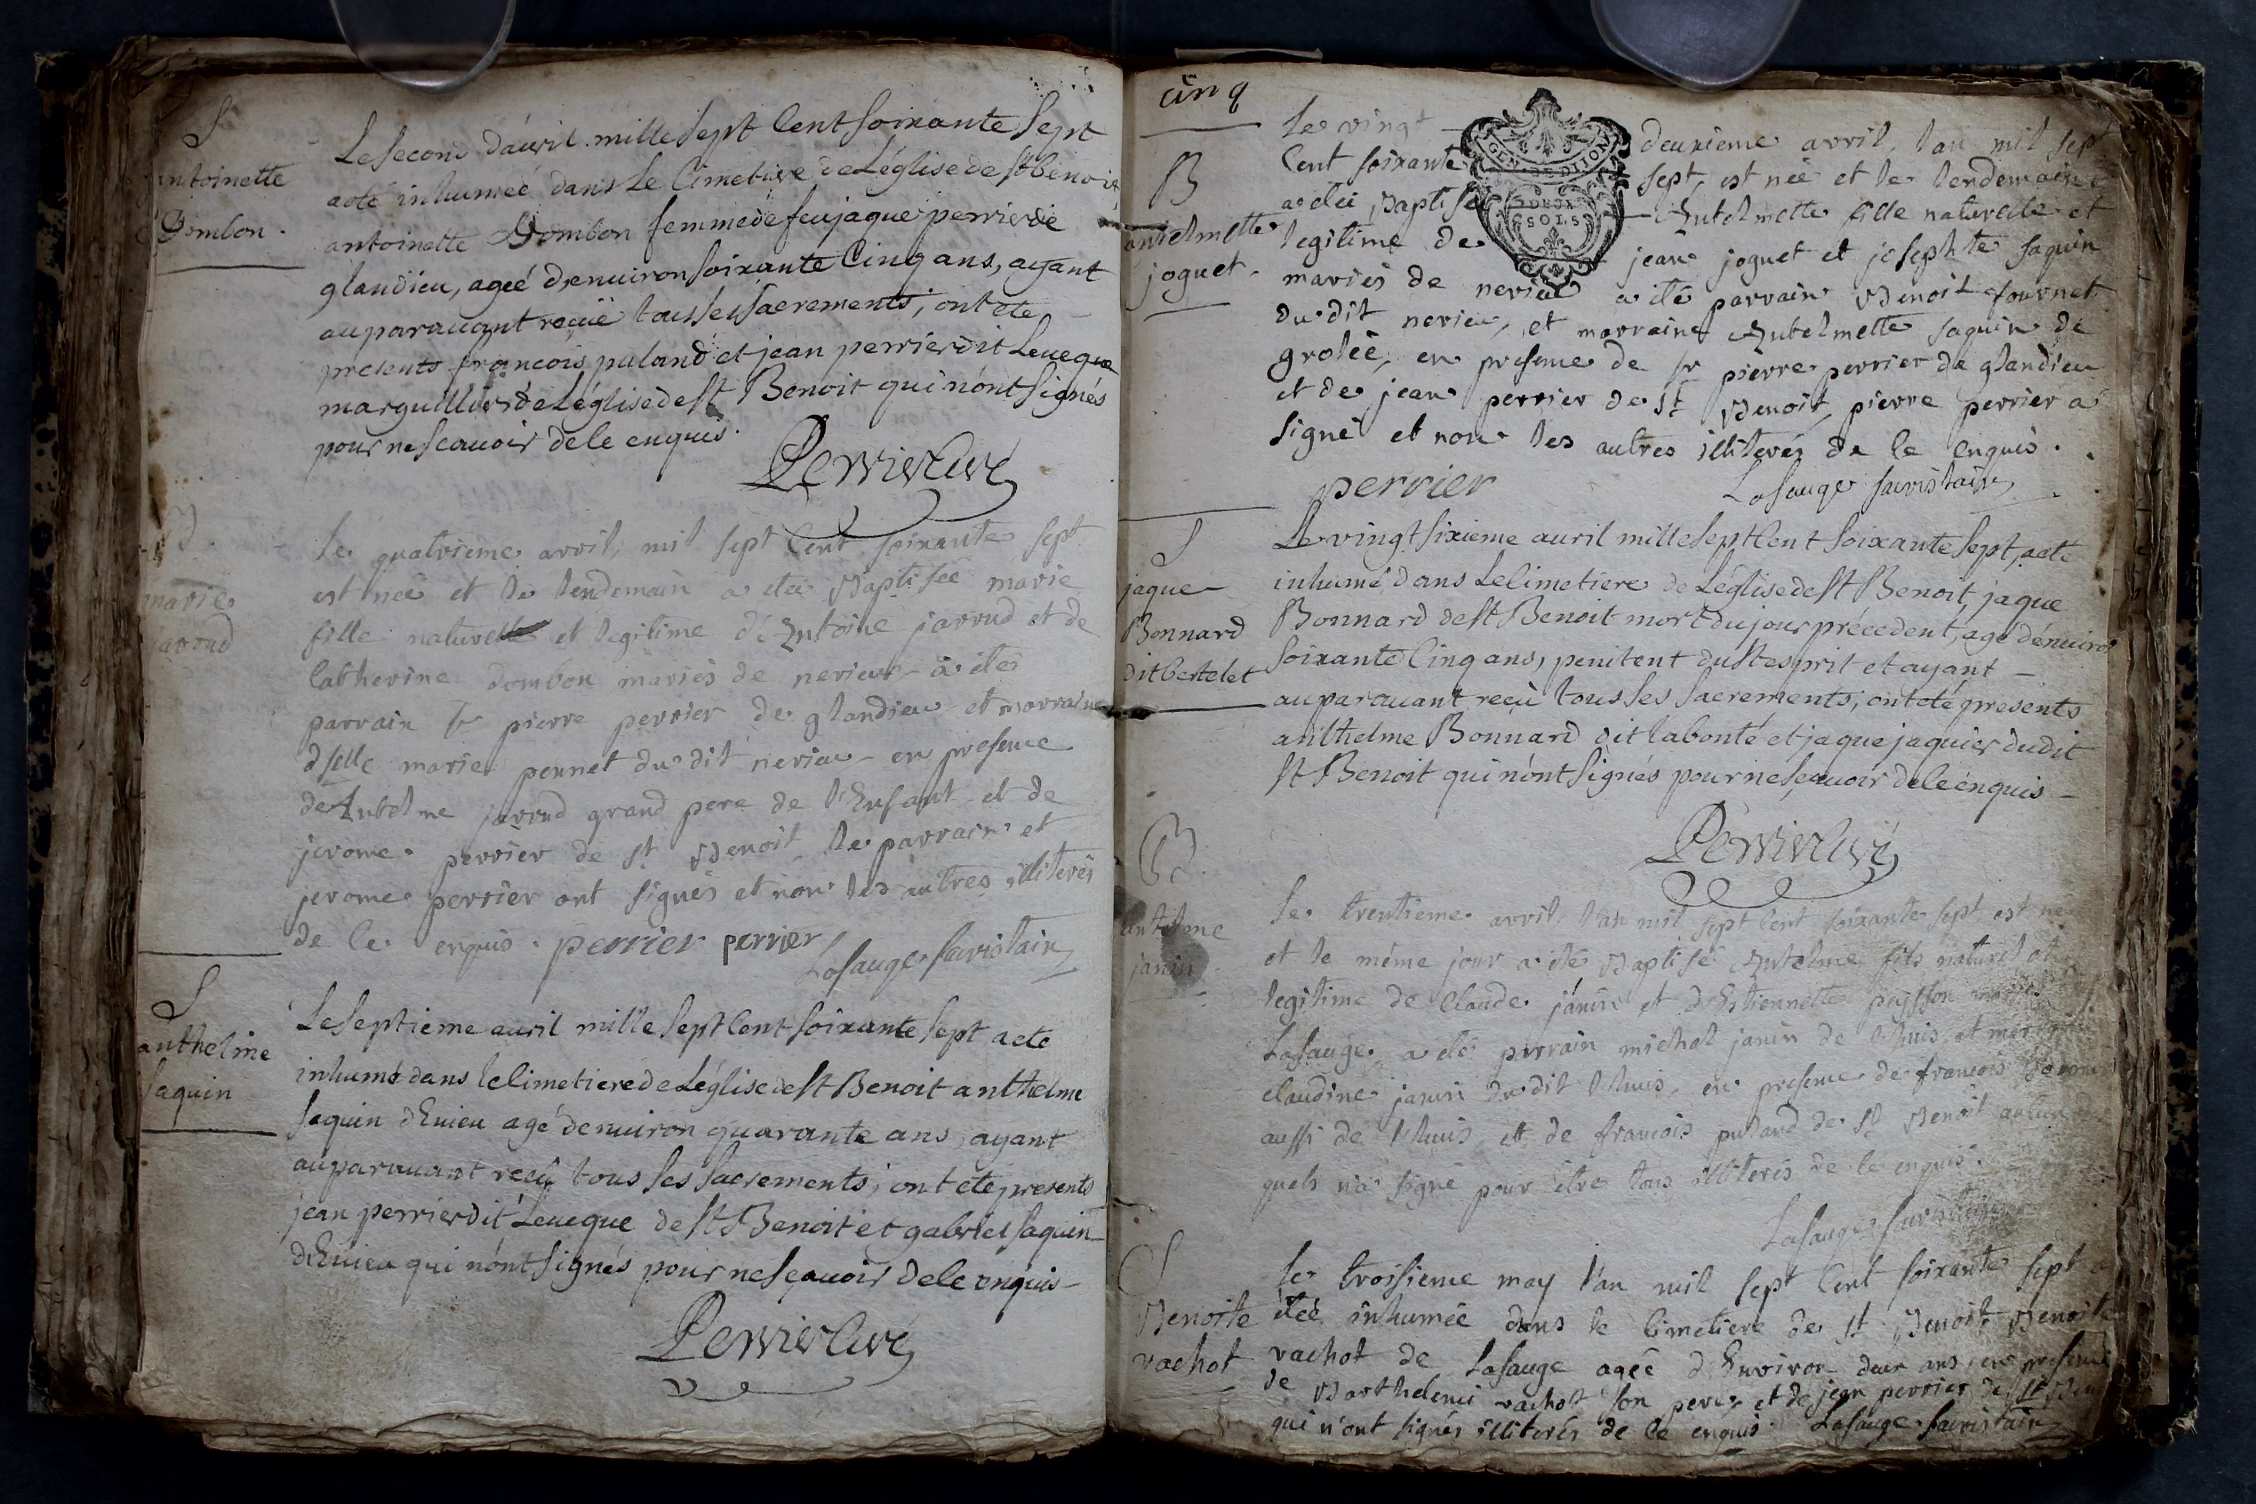 S
antoinette
Dombon.
Le second d'avril mille sept Cent soixante sept
a eté inhumeé dans le Cimetiere de L'église de st benoit
antoinette Dombon femme de feu jaque perrier de
glandieu, ageé d'enuiron soixante Cinq ans, ayant
auparauant reçüe tous ses sacrements, ont ete
presents francois puland et jean perrier dit Leueque
marguilliers de L'église de st Benoit qui n'ont signés
pour ne scauoir de le enquis.
Perrier Curé
B.
marie
jarrud
Le quatrieme avril, mil sept Cent soixante sept
est neé et le lendemain a eteé Baptisée marie
fille naturelle et legitime d'Antoine jarrud et de
Catherine dombon mariés de nerieu a été
parrain sr pierre perrier de glandieu et marraine
dselle marie pennet du dit nerieu en presence
de Antelme jarrud grand pere de l'Enfant et de
jerome perrier de st Benoit le parrain et
jerome perrier ont signés et non les autres illiterés
de ce enquis. perrier perrier
Lasauge sacristain
S
anthelme
saquin
Le septieme auril mille sept Cent soixante sept a eté
inhumé dans le Cimetiere de L'église de st Benoit anthelme
saquin d'Euieu agé denuiron quarante ans, ayant
auparauant reçû tous ses sacrements, ont eté presents
jean perrier dit Leueque de st Benoit et gabriel saquin
d'Euieu qui n'ont signés pour ne sçauoir de le enquis
Perrier Curé
cinq
B
antelmette
joguet
GEN. DE DIJON
DEUX
SOLS
Le vingt deuxieme avril, l'an mil sept
Cent soixante sept, est neé et le lendemain
a eteé Baptisée Antelmette fille naturelle et
legitime de jean joguet et josephte saquin
mariés de nerieu a été parrain Benoit fournet
du dit nerieu, et marraine Antelmette saquin de
groleé, en presence de sr pierre perrier de glandieu
et de jean perrier de st Benoit, pierre perrier a
signé et non les autres illiterés de ce enquis.
perrier Lasauge sacristain
S
jaque
Bonnard
dit bertelet
Le vingt sixieme auril mille sept Cent soixante sept, a eté
inhumé dans le Cimetiere de L'église de st Benoit, jaque
Bonnard de st Benoit mort du jour précedent, agé d'enuiron
soixante Cinq ans, penitent du st esprit et ayant
auparauant reçù tous ses sacrements, ont eté presents
anthelme Bonnard dit labonté et jaque jaquier du dit
st Benoit qui n'ont signés pour ne sçauoir de le enquis
Perrier Curé
B.
antelme
janin
Le trentieme avril l'an mil sept Cent soixante sept est né
et le méme jour a été Baptisé Antelme fils naturel et
legitime de Claude janin et d'Estiennette
Lasauge a été parrain michel janin de Lhuis et
claudine janin du dit Lhuis, en presence de francois
aussi de Lhuis et de francois puland de st Benoit
quels n'a signé pour être tous illiterés de ce enquis.
Lasauge sacristain
S
Benoite
vachot
Le troisieme may l'an mil sept Cent soixante sept a
eteé inhumeé dans le Cimetiere de st Benoit Benoite
vachot de Lasauge ageé d'Environ deux ans en presence
de Barthelemi vachot son pere et de jean perrier de st
qui n'ont signés illiterés de ce enquis. Lasauge sacristain